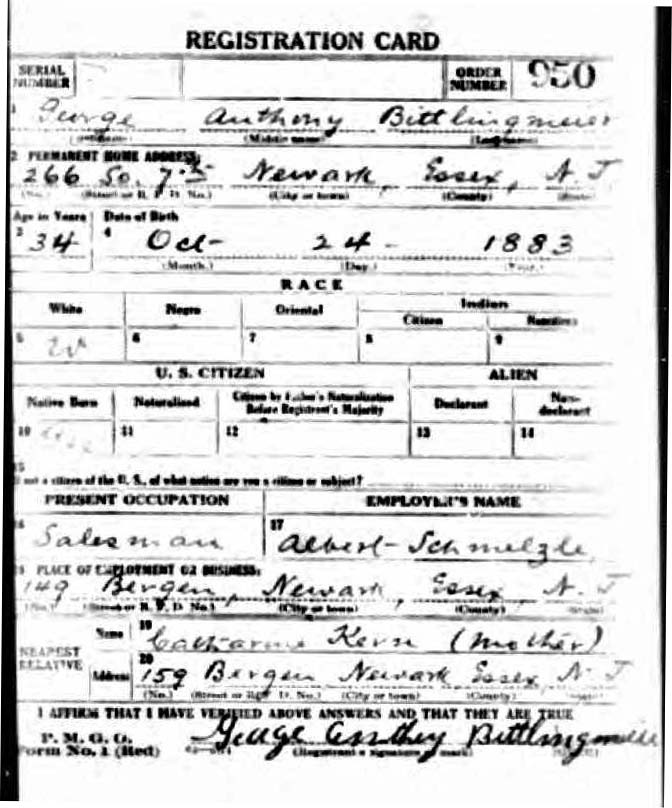 REGISTRATION CARD
SERIAL NUMBER ORDER NUMBER 950
1 George Anthony Bittlingmeier
(Middle name)
2 PERMANENT HOME ADDRESS:
266 So. 7 Newark, Essex, N. J
(No.) (Street or R. F. D. No.) (City or town) (County) (State)
Age in Years Date of Birth
3 34 4 Oct- 24- 1883
(Month.) (Day.) (Year.)
RACE
White Negro Oriental Indian
Citizen
5 W 6 7 8 9
U. S. CITIZEN ALIEN
Native Born Naturalized Citizen by Father's Naturalization Before Registrant's Majority Declarant Non-declarant
10 11 12 13 14
15
If not a citizen of the U. S., of what nation are you a citizen or subject?
PRESENT OCCUPATION EMPLOYER'S NAME
16 Salesman 17 Albert Schmelzle
18 PLACE OF EMPLOYMENT OR BUSINESS:
149 Bergen, Newark, Essex, N. J
(No.) (Street or R. F. D. No.) (City or town) (County) (State)
NEAREST RELATIVE Name 19 Catharine Kern (Mother)
Address 20 159 Bergen Newark Essex N. J
(No.) (Street or R. F. D. No.) (City or town) (County)
I AFFIRM THAT I HAVE VERIFIED ABOVE ANSWERS AND THAT THEY ARE TRUE
P. M. G. O.
Form No. 1 (Red) George Anthony Bittlingmeier
(Registrant's signature or mark)